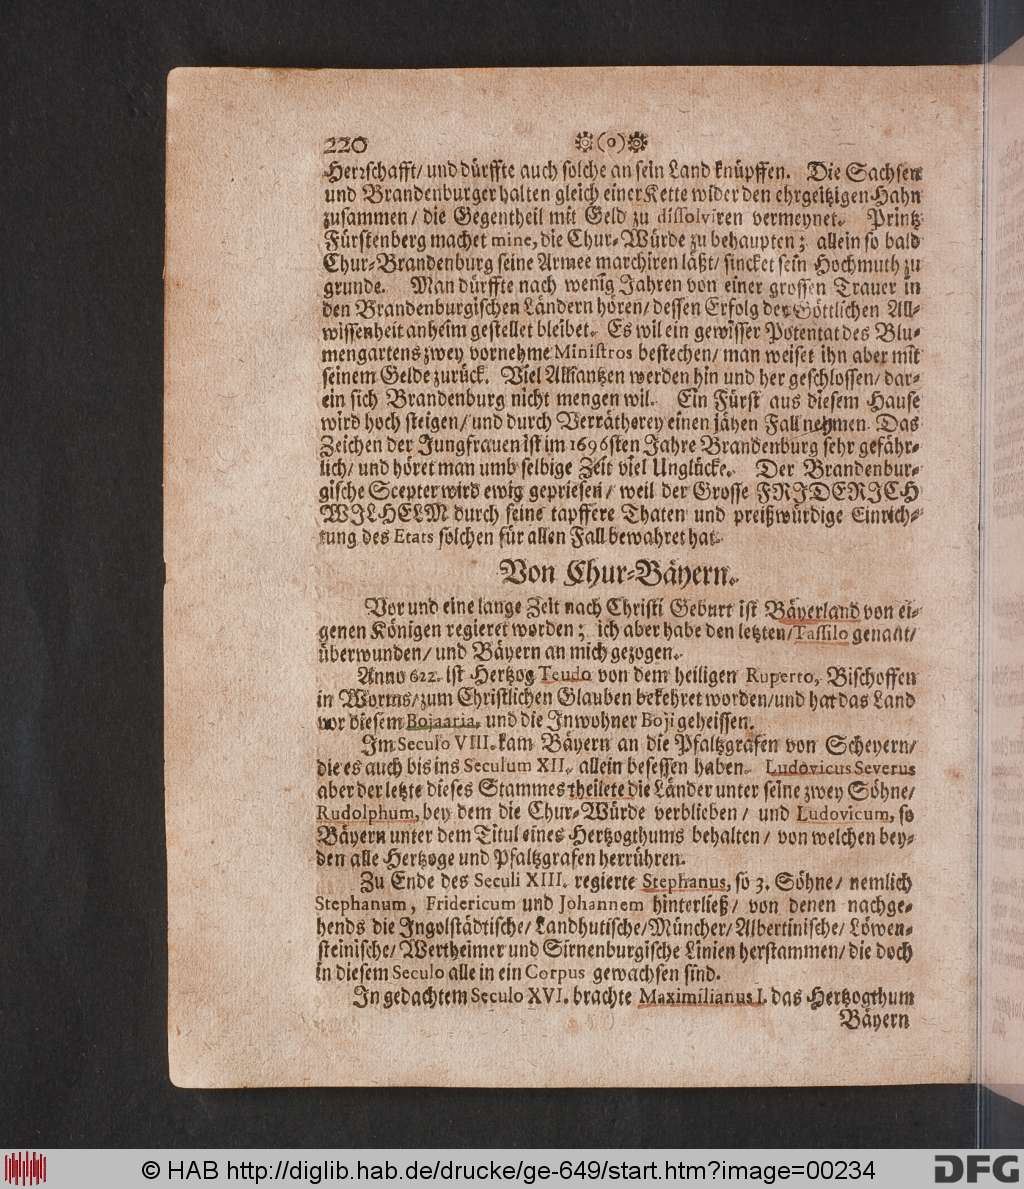 220 ❋(o)❋
Herrschafft/ und dürffte auch solche an sein Land knüpffen. Die Sachsen
und Brandenburger halten gleich einer Kette wider den ehrgeitzigen Hahn
zusammen/ die Gegentheil mit Geld zu dissolviren vermeynet. Printz
Fürstenberg machet mine, die Chur-Würde zu behaupten; allein so bald
Chur-Brandenburg seine Armee marchiren läßt/ sincket sein Hochmuth zu
grunde. Man dürffte nach wenig Jahren von einer grossen Trauer in
den Brandenburgischen Ländern hören/ dessen Erfolg der Göttlichen All-
wissenheit anheim gestellet bleibet. Es wil ein gewisser Potentat des Blu-
mengartens zwey vornehme Ministros bestechen/ man weiset ihn aber mit
seinem Gelde zurück. Viel Alliantzen werden hin und her geschlossen/ dar-
ein sich Brandenburg nicht mengen wil. Ein Fürst aus diesem Hause
wird hoch steigen/ und durch Verrätherey einen jähen Fall nehmen. Das
Zeichen der Jungfrauen ist im 1696sten Jahre Brandenburg sehr gefähr-
lich/ und höret man umb selbige Zeit viel Unglücke. Der Brandenbur-
gische Scepter wird ewig gepriesen/ weil der Grosse FRIDERICH
WILHELM durch seine tapffere Thaten und preißwürdige Einrich-
tung des Etats solchen für allen Fall bewahret hat.
Von Chur-Bäyern.
Vor und eine lange Zeit nach Christi Geburt ist Bäyerland von ei-
genen Königen regieret worden; ich aber habe den letzten/ Tassilo genañt/
überwunden/ und Bäyern an mich gezogen.
Anno 622. ist Hertzog Teudo von dem heiligen Ruperto, Bischoffen
in Worms/ zum Christlichen Glauben bekehret worden/ und hat das Land
vor diesem Bojaaria, und die Inwohner Boji geheissen.
Im Seculo VIII. kam Bäyern an die Pfaltzgrafen von Scheyern/
die es auch bis ins Seculum XII. allein besessen haben. Ludovicus Severus
aber der letzte dieses Stammes theilete die Länder unter seine zwey Söhne/
Rudolphum, bey dem die Chur-Würde verblieben/ und Ludovicum, so
Bäyern unter dem Titul eines Hertzogthums behalten/ von welchen bey-
den alle Hertzoge und Pfaltzgrafen herrühren.
Zu Ende des Seculi XIII. regierte Stephanus, so 3. Söhne/ nemlich
Stephanum, Fridericum und Johannem hinterließ/ von denen nachge-
hends die Ingolstädtische/ Landhutische/ Müncher/ Albertinische/ Löwen-
steinische/ Wertheimer und Sirnenburgische Linien herstammen/ die doch
in diesem Seculo alle in ein Corpus gewachsen sind.
In gedachtem Seculo XVI. brachte Maximilianus I. das Hertzogthum
Bäyern
© HAB http://diglib.hab.de/drucke/ge-649/start.htm?image=00234
DFG